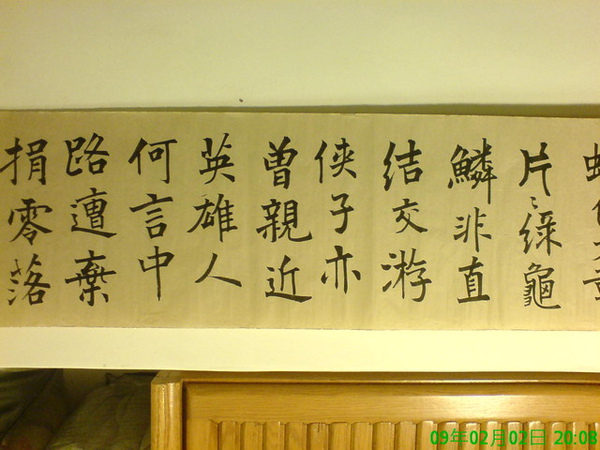 片〻緑龜
鱗非直
結交游
俠子亦
曾親近
英雄人
何言中
路遭棄
捐零落
09年02月02日 20:08